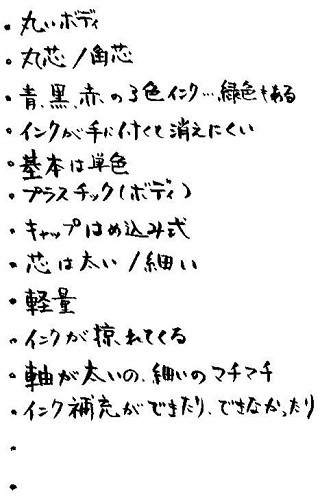 ・丸いボディ
・丸芯/角芯
・青、黒、赤、の3色インク…緑色もある
・インクが手に付くと消えにくい
・基本は単色
・プラスチック(ボディ)
・キャップはめ込み式
・芯は太い/細い
・軽量
・インクが掠れてくる
・軸が太いの、細いのマチマチ
・インク補充ができたり、できなかったり
・
・